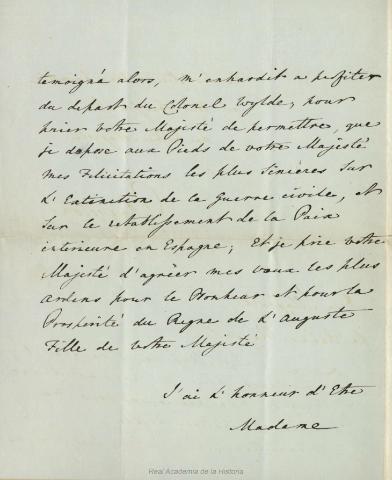 temoigné alors, m'enhardit a profiter
du depart du Colonel Wylde, pour
prier votre Majesté de permettre, que
je depose aux Pieds de votre Majesté
mes Felicitations les plus sinceres sur
L'Extinction de la Guerre civile, et
sur le retablissement de la Paix
interieure en Espagne; Et je prie votre
Majesté d'agréer mes vœux les plus
ardens pour le Bonheur et pour la
Prosperité du Regne de L'Auguste
Fille de votre Majesté
J'ai L'honneur d'Etre
Madame
Real Academia de la Historia